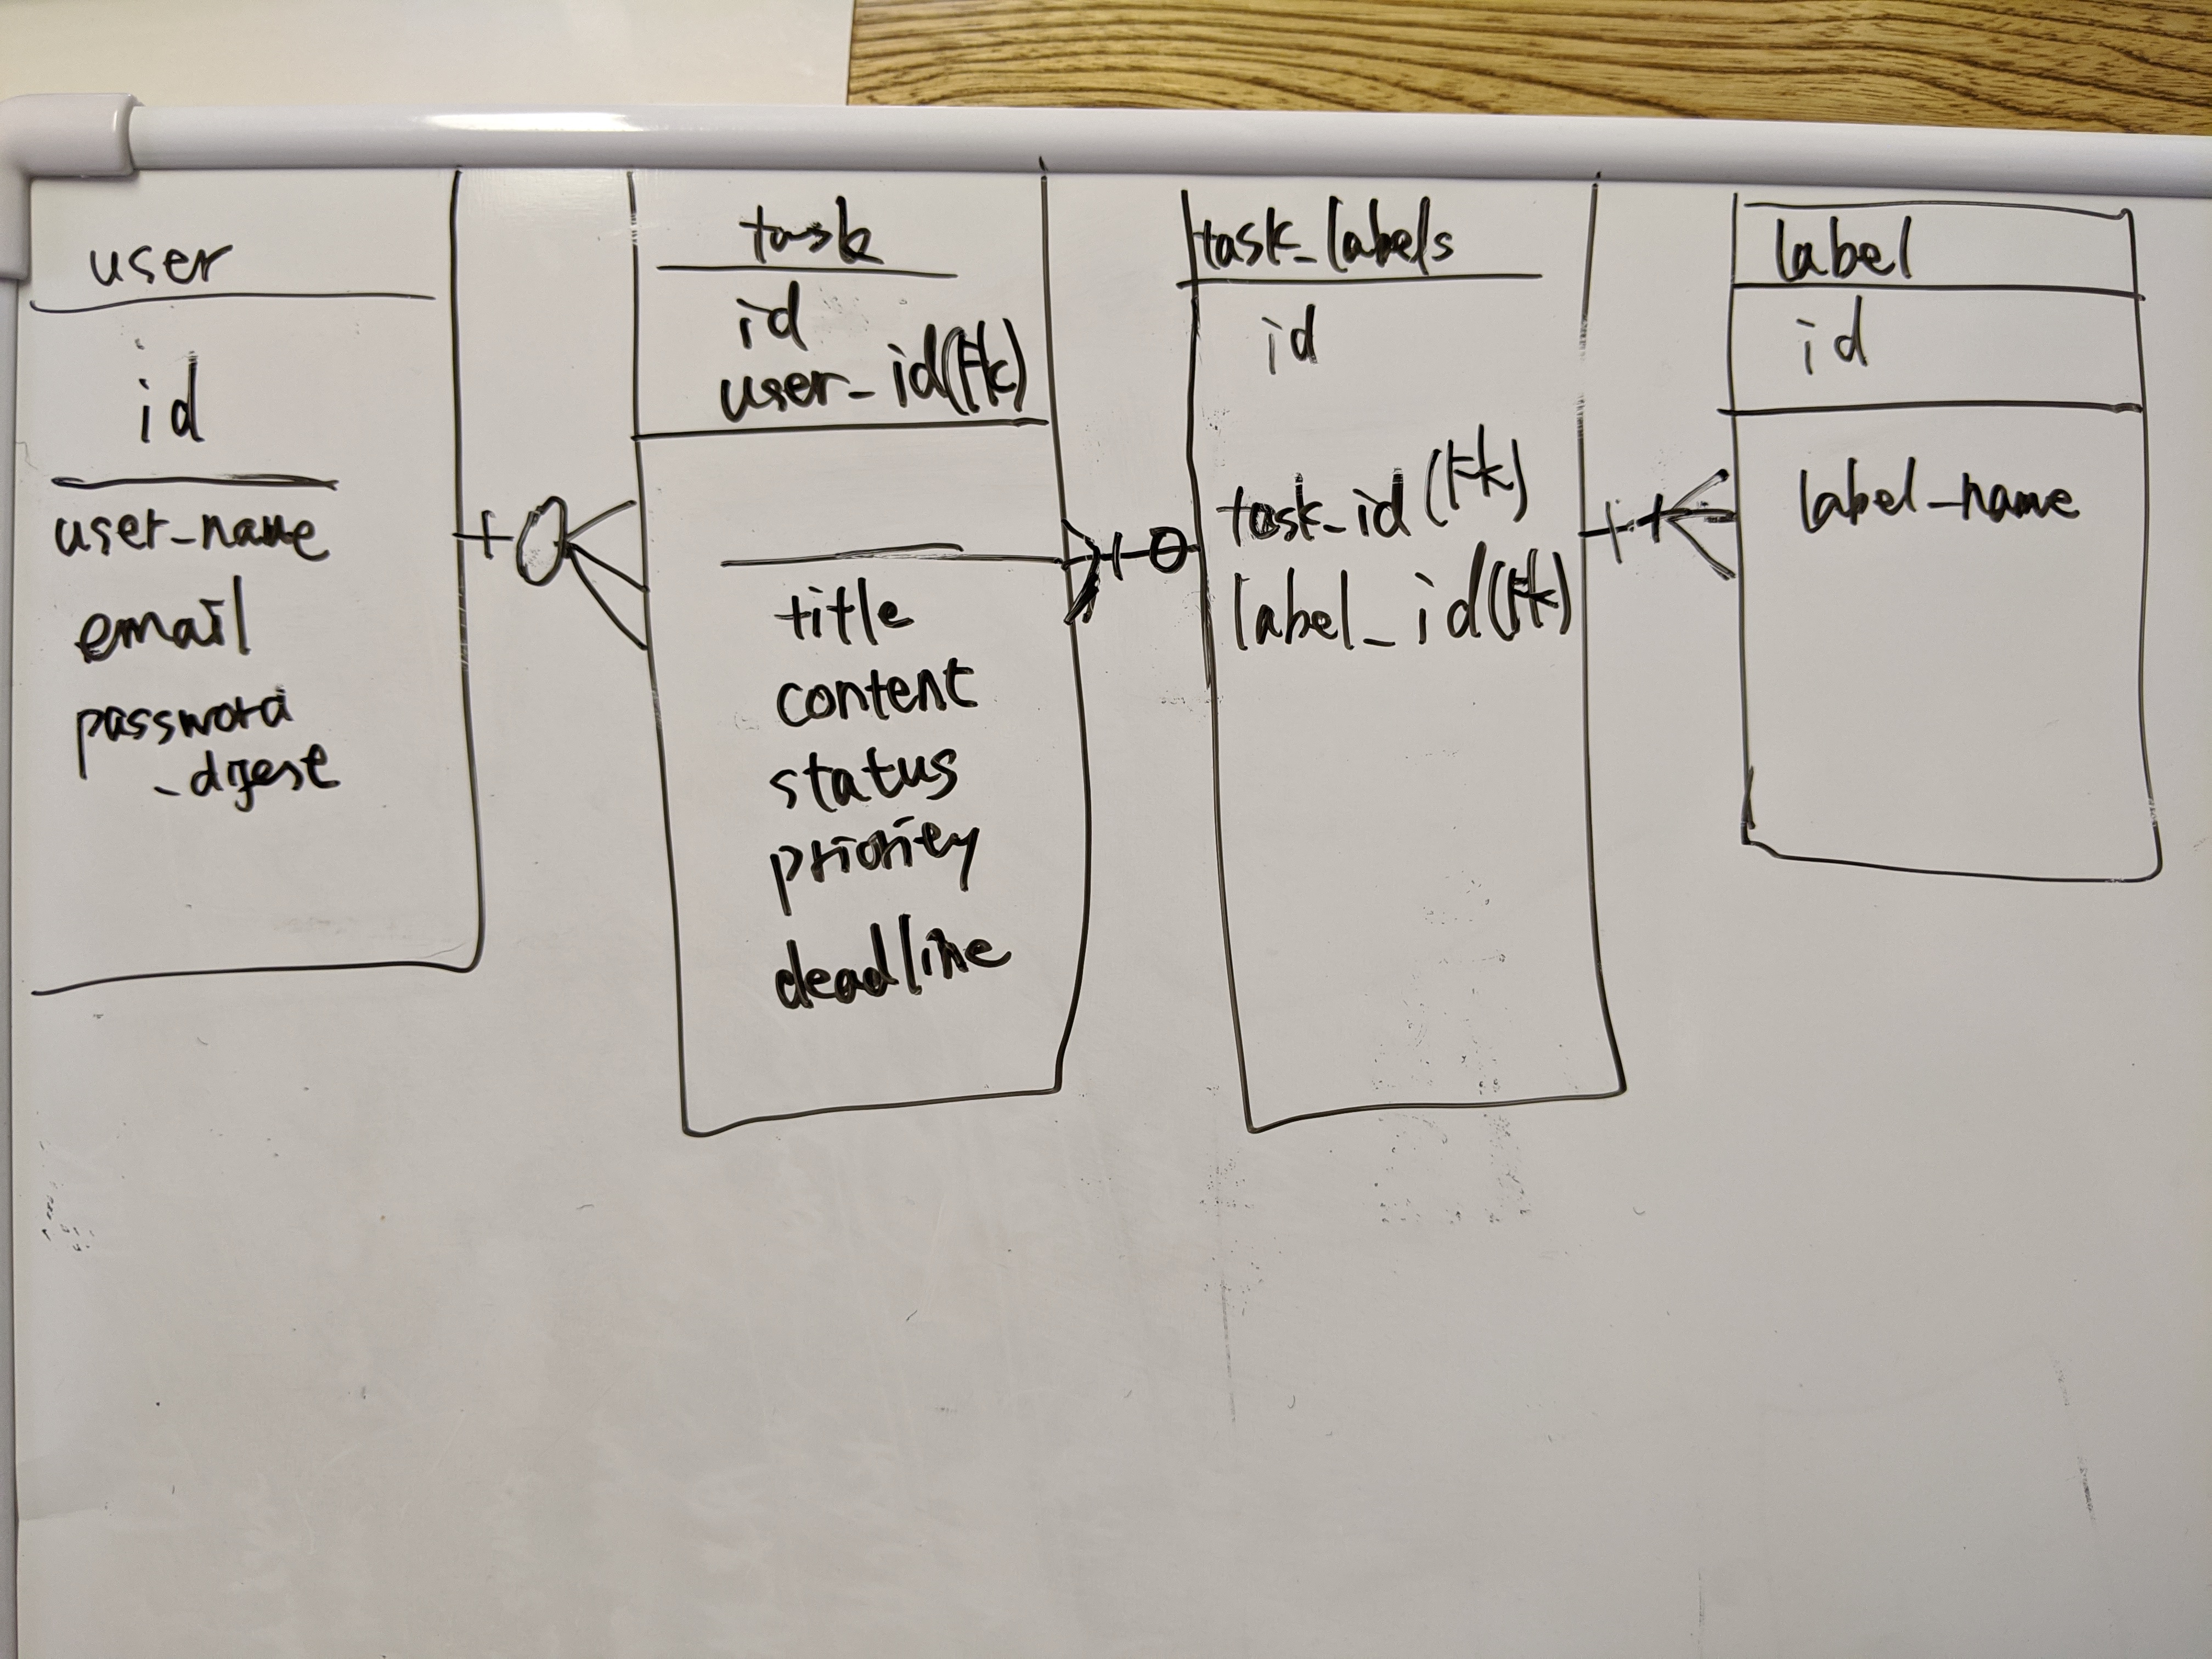 user
id
user_name
email
password
_digest
task
id
user_id(Fk)
title
content
status
priority
deadline
task_labels
id
task_id(Fk)
label_id(Fk)
label
id
label_name